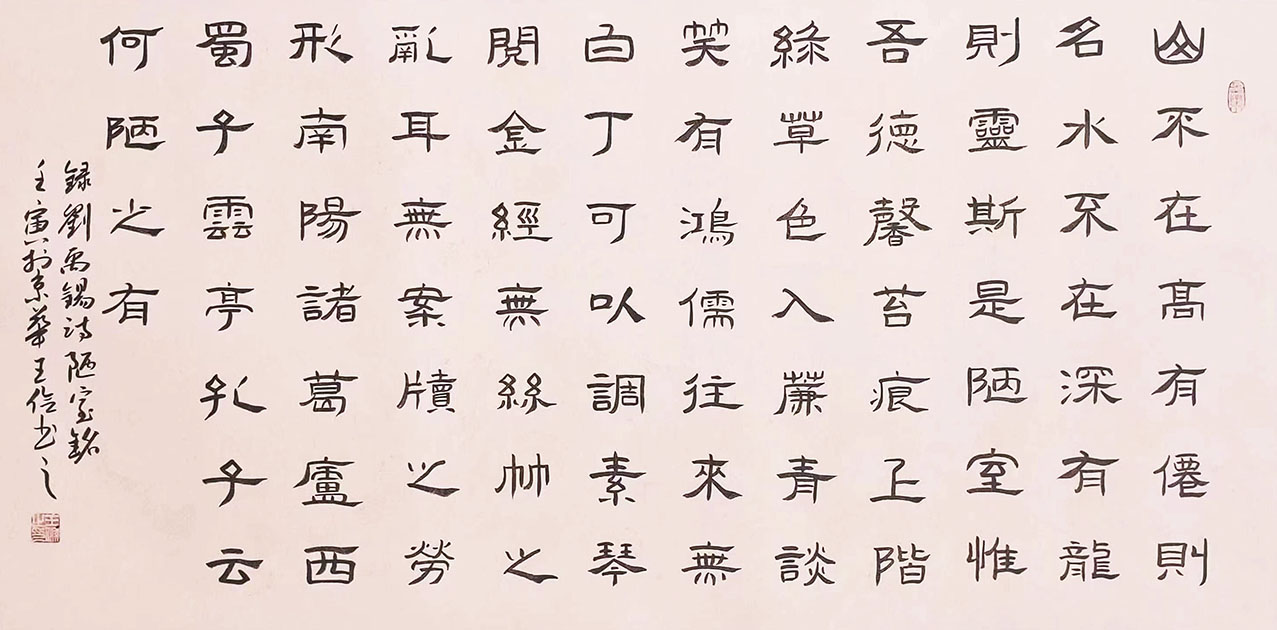 山不在高有僊則
名水不在深有龍
則靈斯是陋室惟
吾德馨苔痕上階
綠草色入簾青談
笑有鴻儒往來無
白丁可以調素琴
閱金經無絲竹之
亂耳無案牘之勞
形南陽諸葛廬西
蜀子雲亭孔子云
何陋之有
録劉禹錫詩陋室銘
壬寅於京華王俭书之